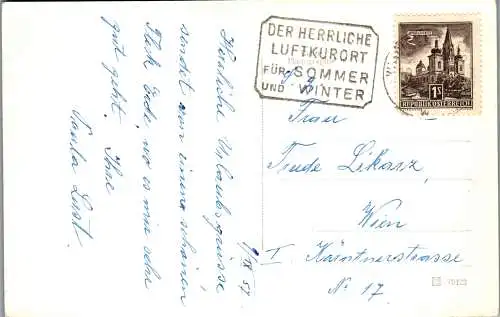 Herzliche Urlaubsgrüsse
sendet von einem schönen
Fleck Erde, wo es mir sehr
gut geht. Ihre
Paula Lust.
9/IX 57.
DER HERRLICHE
LUFTKURORT
FÜR SOMMER
UND WINTER
1S
REPUBLIK ÖSTERREICH
Frau
Trude Likarz,
Wien
I. Kärntnerstrasse
No 17.